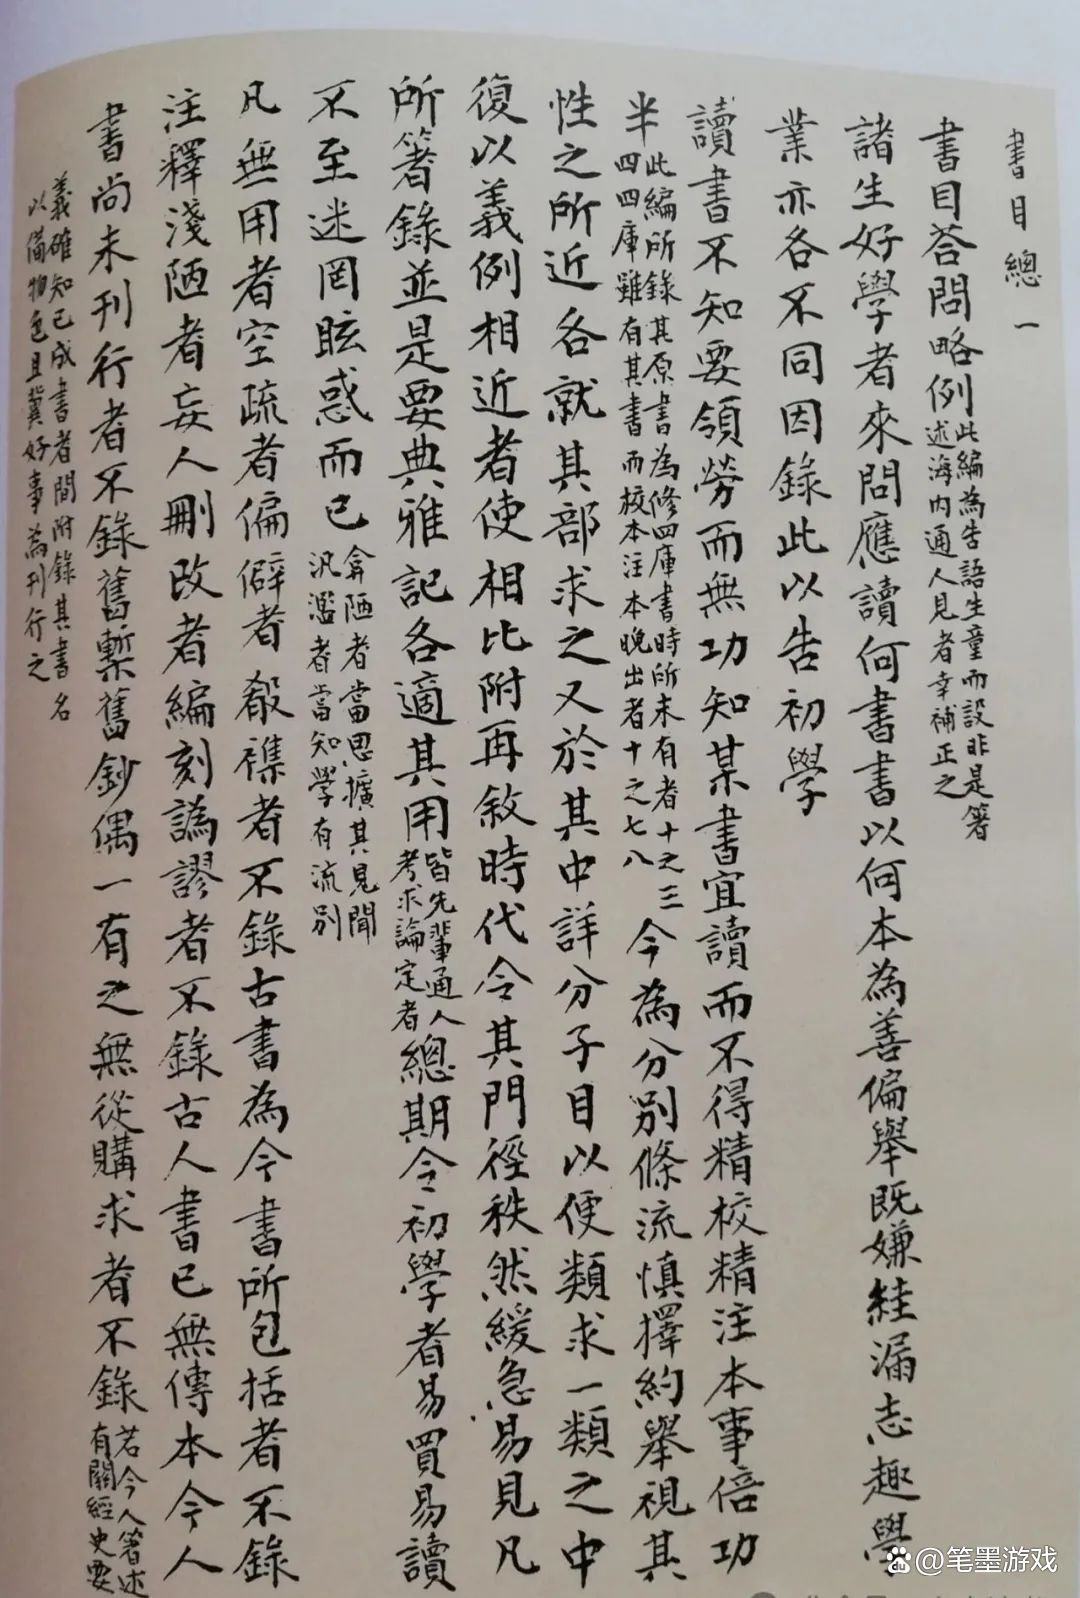 書目總一
書目荅問略例此編為告語生童而設非是箸
述海内通人見者幸補正之
諸生好學者來問應讀何書書以何本為善偏舉既嫌絓漏志趣學
業亦各不同因錄此以告初學
讀書不知要領勞而無功知某書宜讀而不得精校精注本事倍功
半此編所錄其原書為修四庫書時所未有者十之三
四四庫雖有其書而校本注本晚出者十之七八
今為分別條流慎擇約舉視其
性之所近各就其部求之又於其中詳分子目以便類求一類之中
復以義例相近者使相比附再敘時代令其門徑秩然緩急易見凡
所箸錄並是要典雅記各適其用皆先輩通人
考求論定者
總期令初學者易買易讀
不至迷罔眩惑而已弇陋者當思擴其見聞
汎濫者當知學有流別
凡無用者空疏者偏僻者殽襍者不錄古書為今書所包括者不錄
注釋淺陋者妄人刪改者編刻譌謬者不錄古人書已無傳本今人
書尚未刊行者不錄舊槧舊鈔偶一有之無從購求者不錄若今人箸述
有關經史要
義確知已成書者間附錄其書名
以備物色且冀好事為刊行之
@笔墨游戏